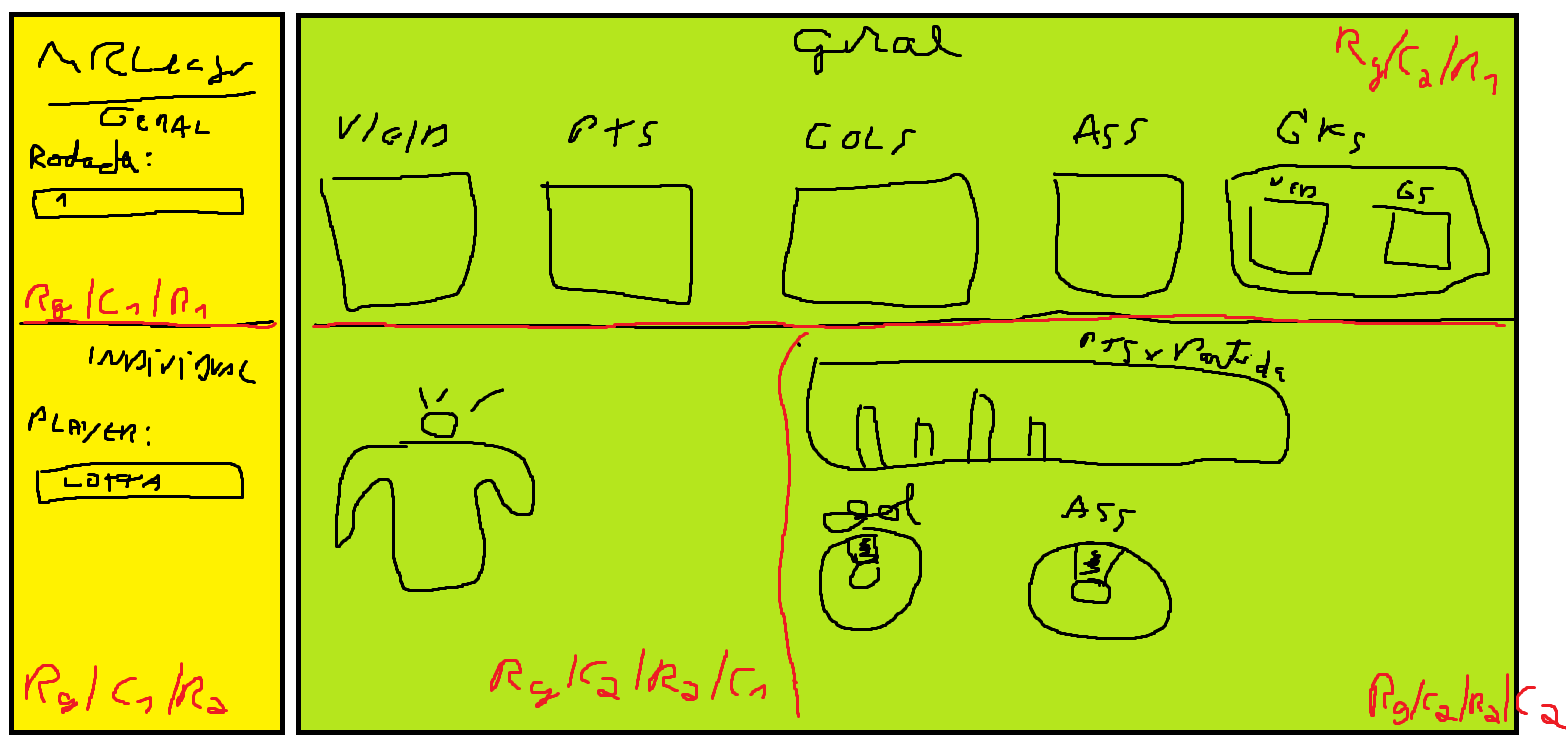 MRLeagu
GERAL
Rodada:
1
Rg/C1/R1
INDIVIDUAL
PLAYER:
LOTTA
Rg/C1/R2
geral
Rg/C2/R1
V/E/D
PTS
GOLS
ASS
GKs
V/E/D
GS
Rg/C2/R2/C1
PTS x Partida
gol
ASS
Rg/C2/R2/C2